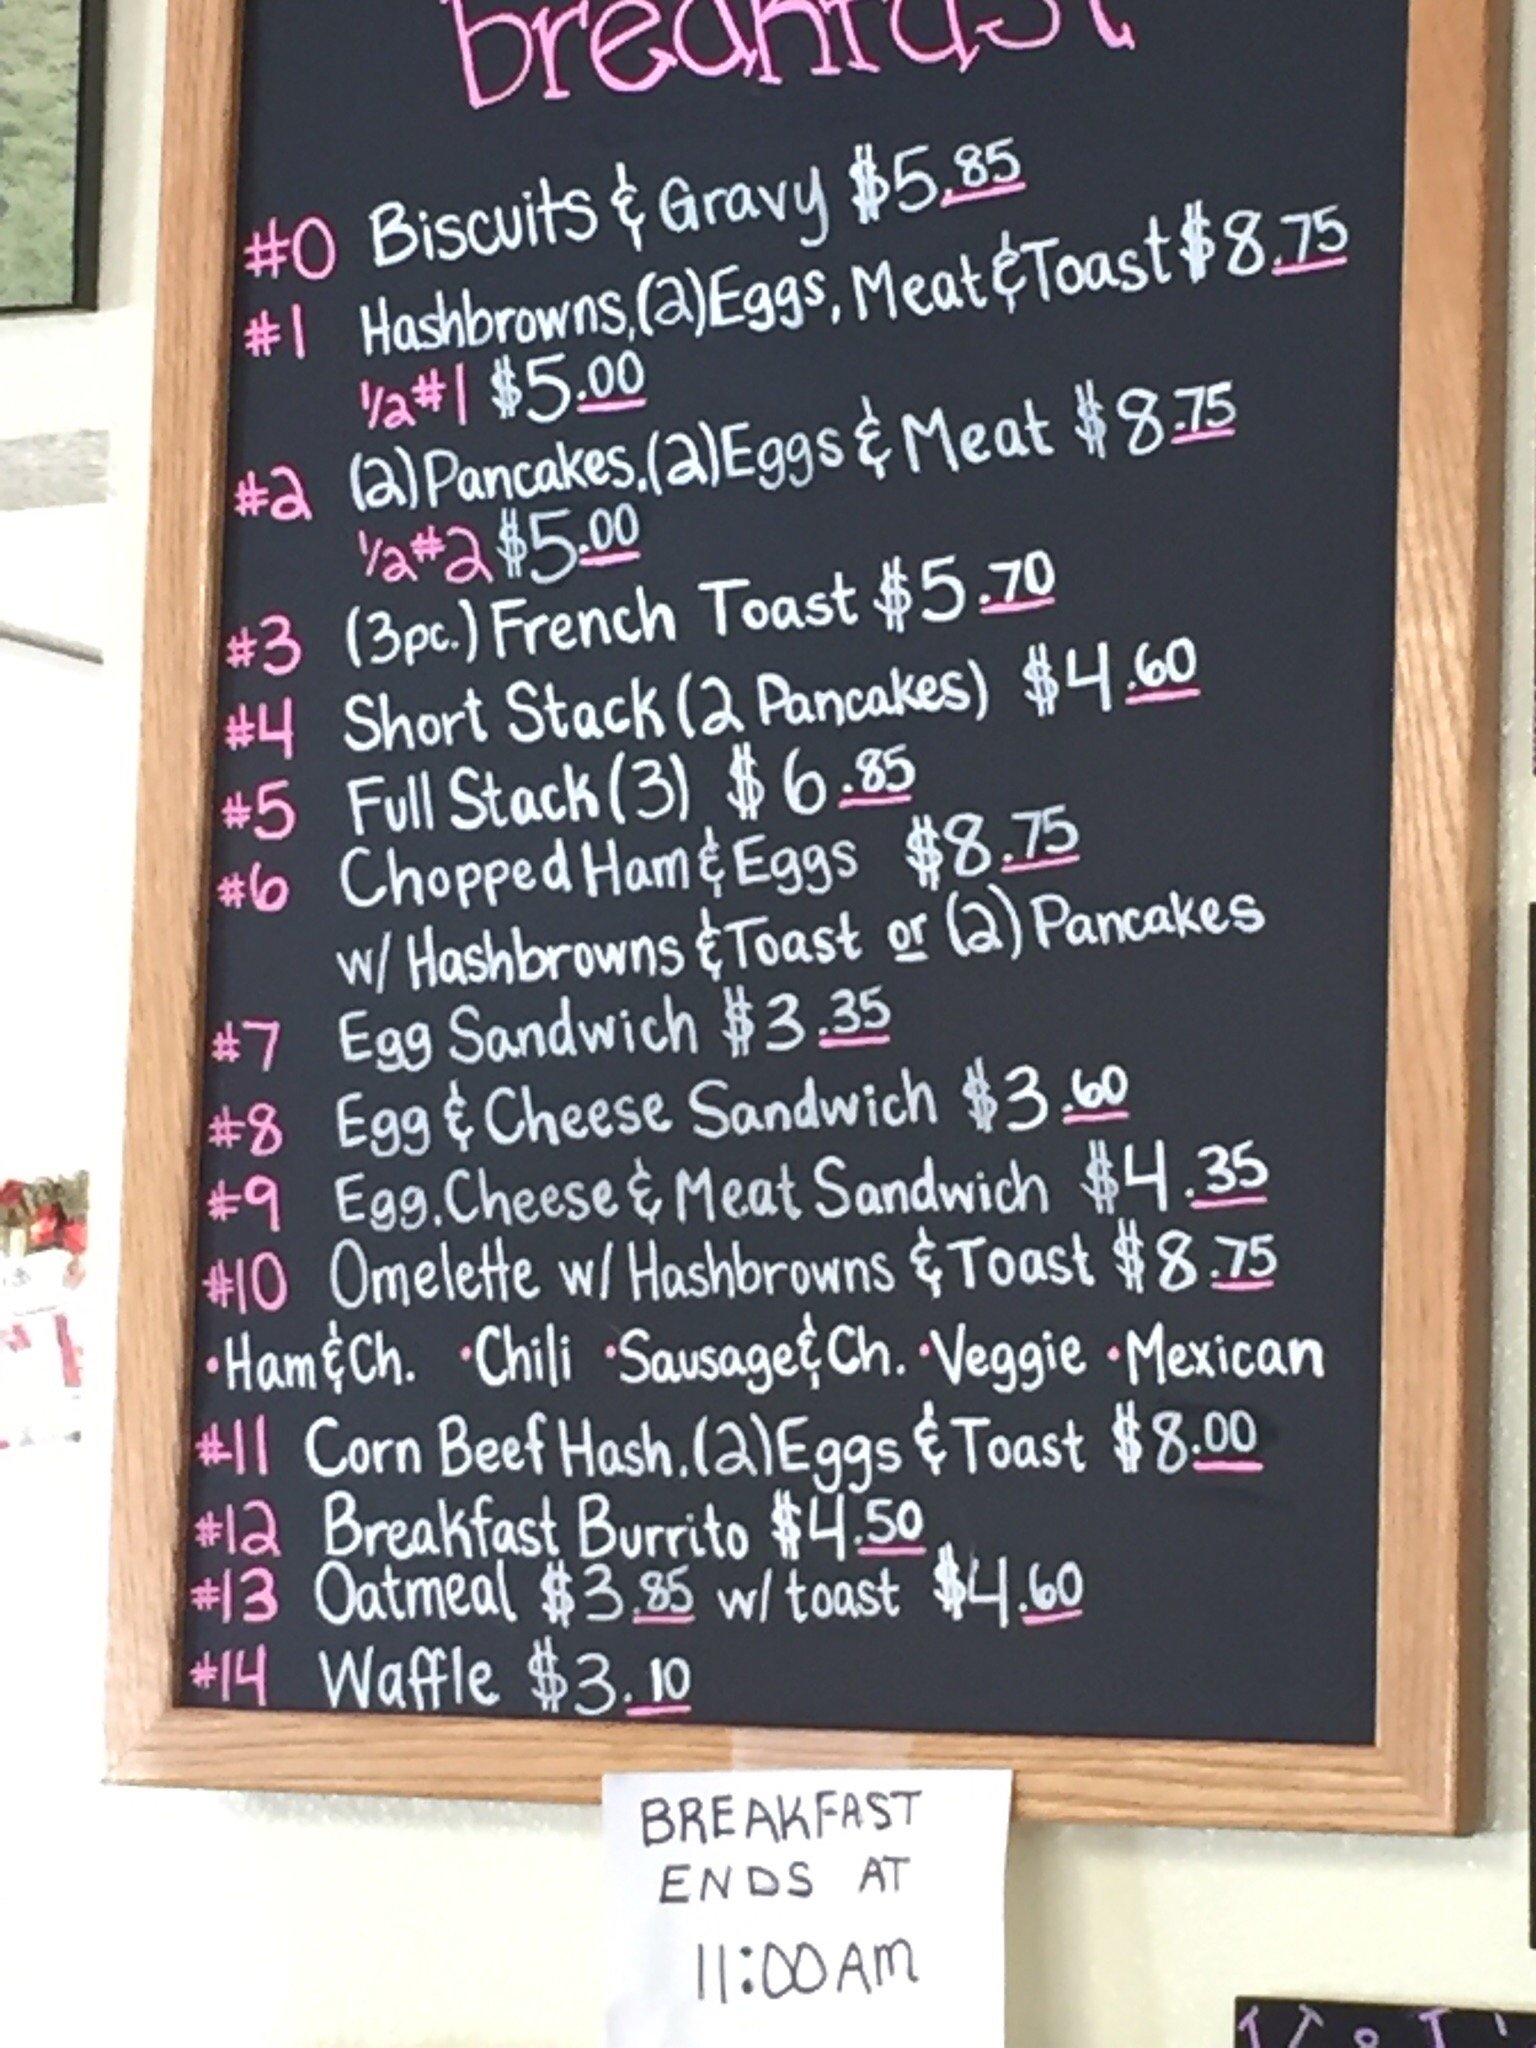 breakfast
#0 Biscuits & Gravy $5.85
#1 Hashbrowns,(2)Eggs, Meat & Toast $8.75
1/2 #1 $5.00
#2 (2)Pancakes,(2)Eggs & Meat $8.75
1/2 #2 $5.00
#3 (3pc.) French Toast $5.70
#4 Short Stack (2 Pancakes) $4.60
#5 Full Stack (3) $6.85
#6 Chopped Ham & Eggs $8.75
w/ Hashbrowns & Toast or (2) Pancakes
#7 Egg Sandwich $3.35
#8 Egg & Cheese Sandwich $3.60
#9 Egg, Cheese & Meat Sandwich $4.35
#10 Omelette w/ Hashbrowns & Toast $8.75
•Ham & Ch. •Chili •Sausage & Ch. •Veggie •Mexican
#11 Corn Beef Hash, (2)Eggs & Toast $8.00
#12 Breakfast Burrito $4.50
#13 Oatmeal $3.85 w/ toast $4.60
#14 Waffle $3.10
BREAKFAST
ENDS AT
11:00AM